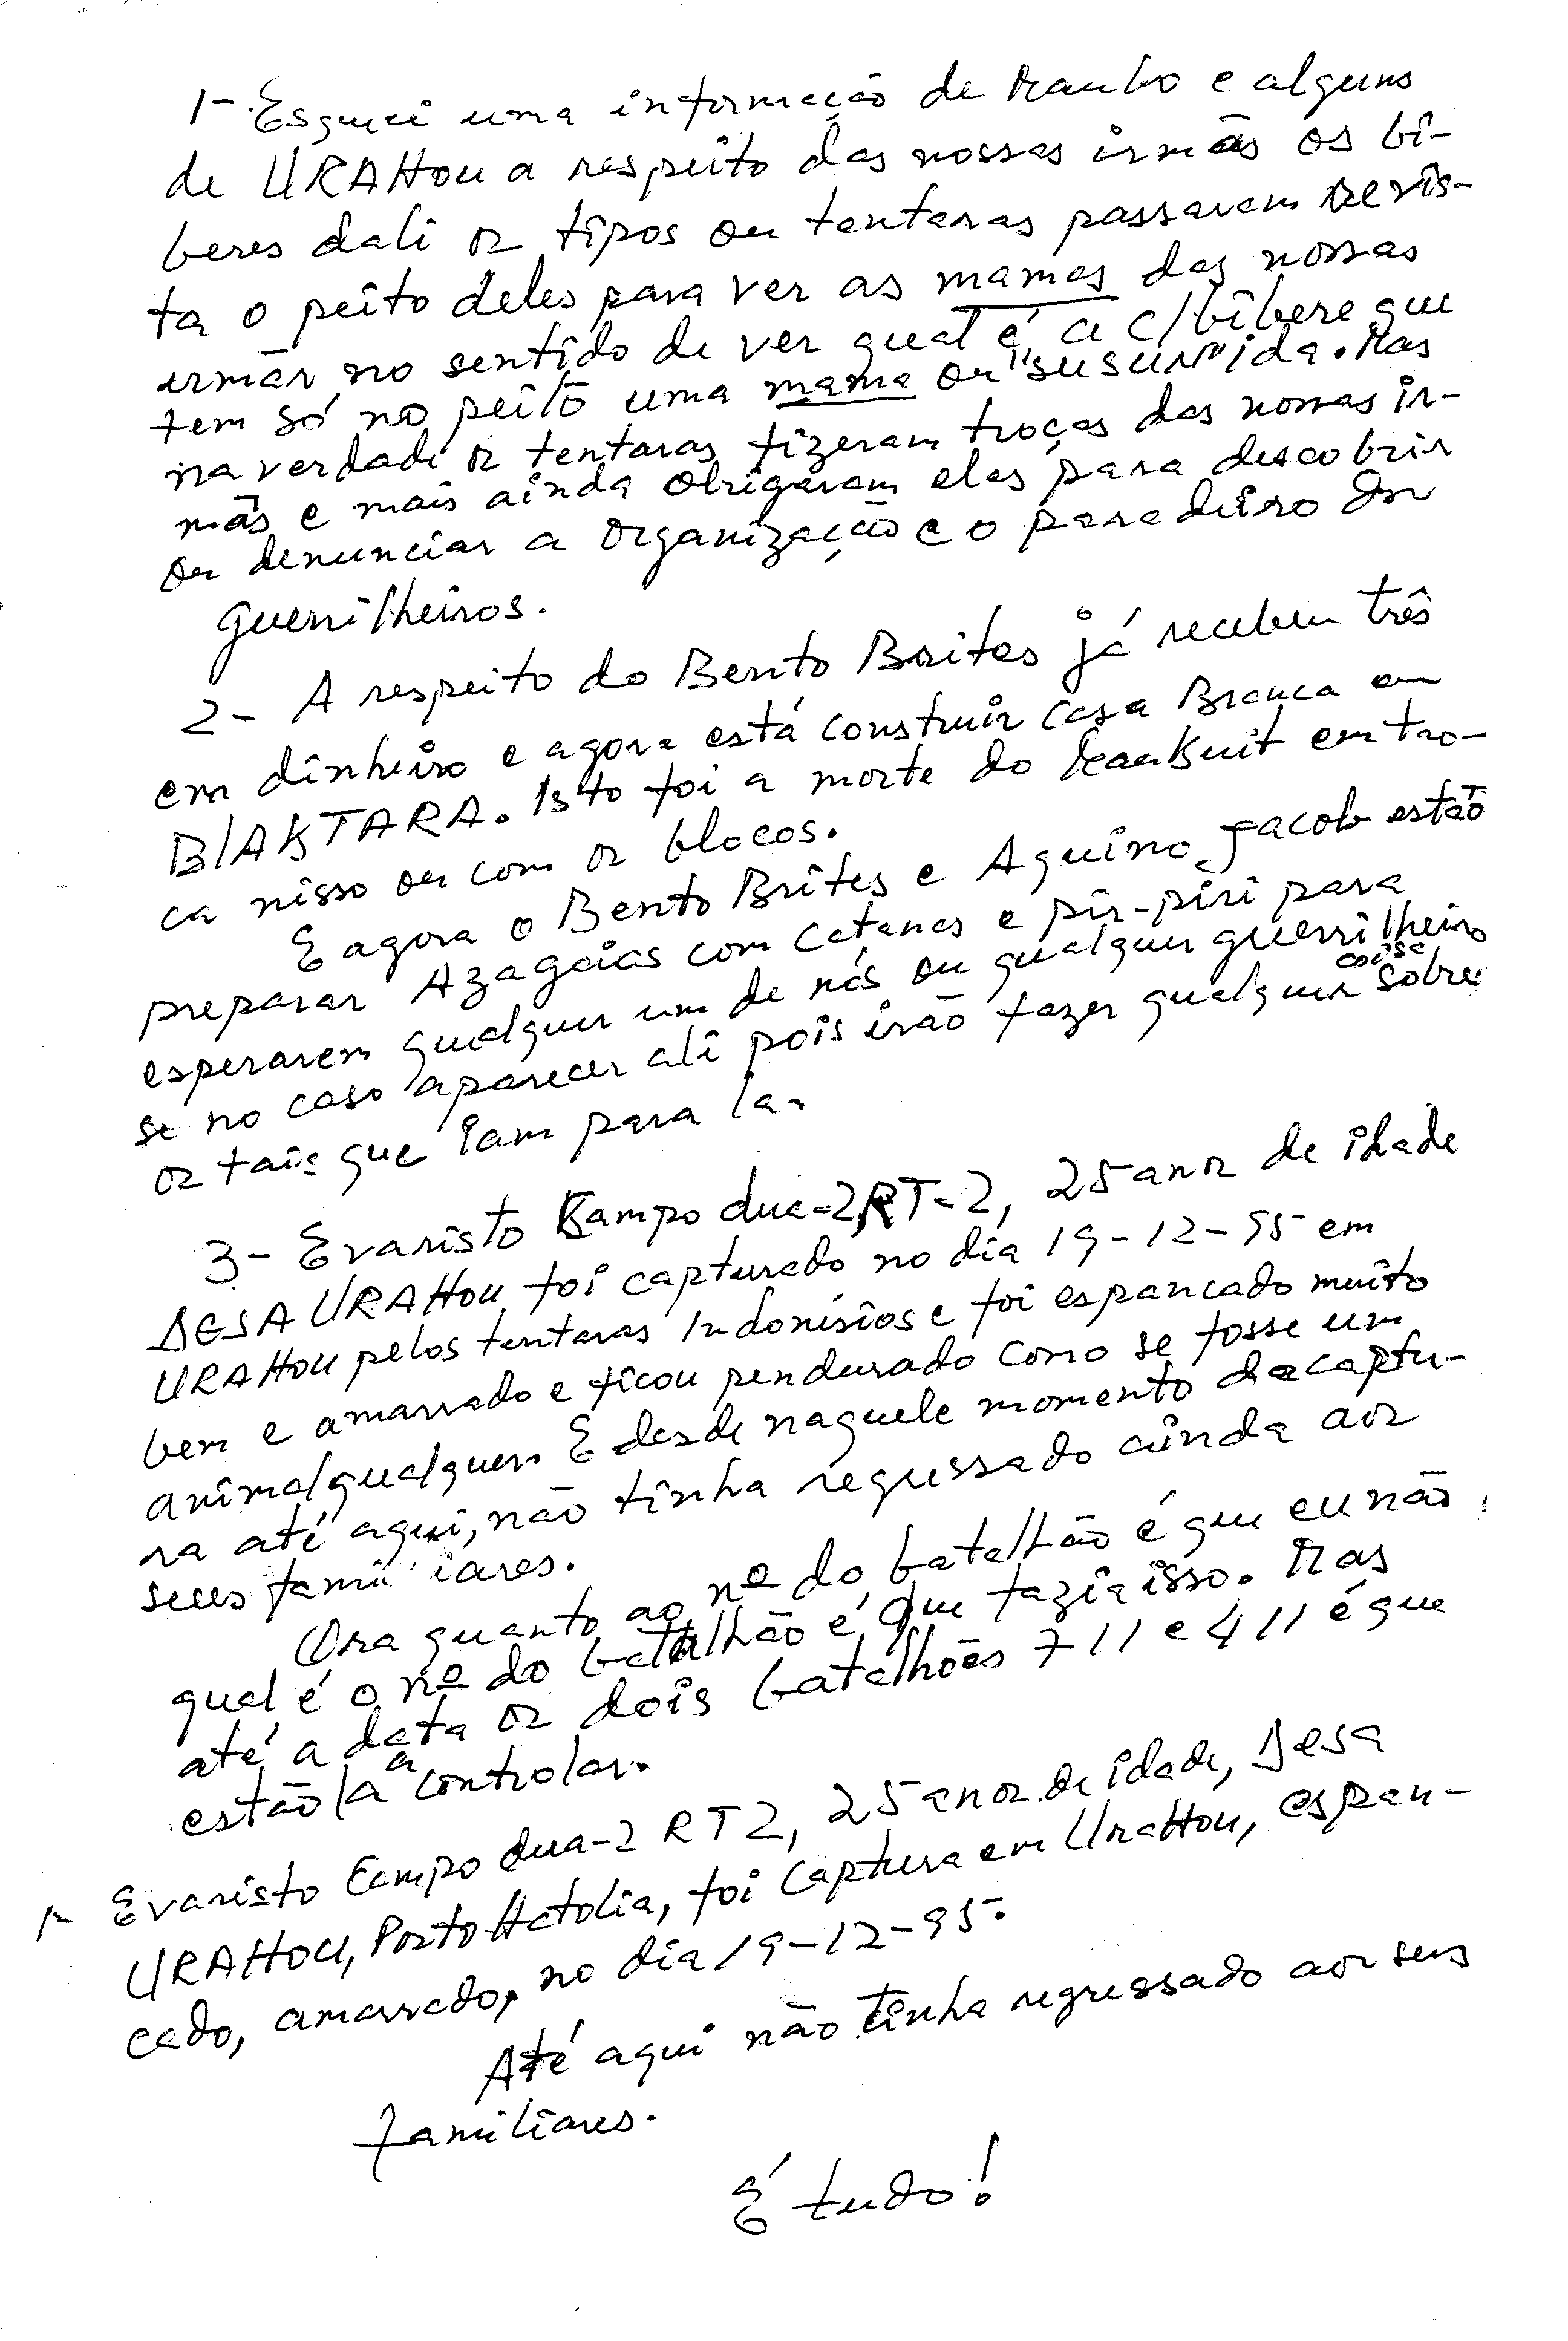 1- Esquici uma informação de Maubo e alguns
de URAHOU a respeito das nossas irmãs os bi-
beres dali os tipos ou tentaras passarem revis-
ta o peito deles para ver as mamas das nossas
irmãs no sentido de ver qual é a c/bibere que
tem só no peito uma mama or "susun" ida. Mas
na verdade os tentaras fizeram troças das nossas ir-
mãs e mais ainda obrigaram elas para descobrir
ou denunciar a organização e o paradeiro dos
guerrilheiros.
2- A respeito do Bento Brites já recebeu três
em dinheiro e agora está construir Casa Branca em
BIAKTARA. Isto foi a morte do em tro-
ca nisso ou com os blocos.
E agora o Bento Brites e Aquino Jacob estão
preparar Azagaias com Catanas e pir-piri para
esperarem qualquer um de nós ou qualquer guerrilheiro
se no caso aparecer ali pois irão fazer qualquer coisa sobre
os tais que iam para la.
3- Evaristo Kampo dua-2, RT-2, 25 anos de idade
DESA URAHOU foi capturado no dia 19-12-95 em
URAHOU pelos tentaras Indonésios e foi espancado muito
bem e amarrado e ficou pendurado como se fosse um
animal qualquer. E desde naquele momento da captu-
ra até aqui, não tinha regressado ainda aos
seus familiares.
Ora quanto ao nº do batalhão é que eu não
qual é o nº do batalhão é que fazia isso. Mas
até a data os dois batalhões 711 e 411 é que
estão la a controlar.
Evaristo Campo dua-2 RT2, 25 anos de idade, Desa
URAHOU, Posto Hatolia, foi captura em Urahou, espan-
cado, amarrado, no dia 19-12-95.
Até aqui não tinha regressado aos seus
familiares.
É tudo!